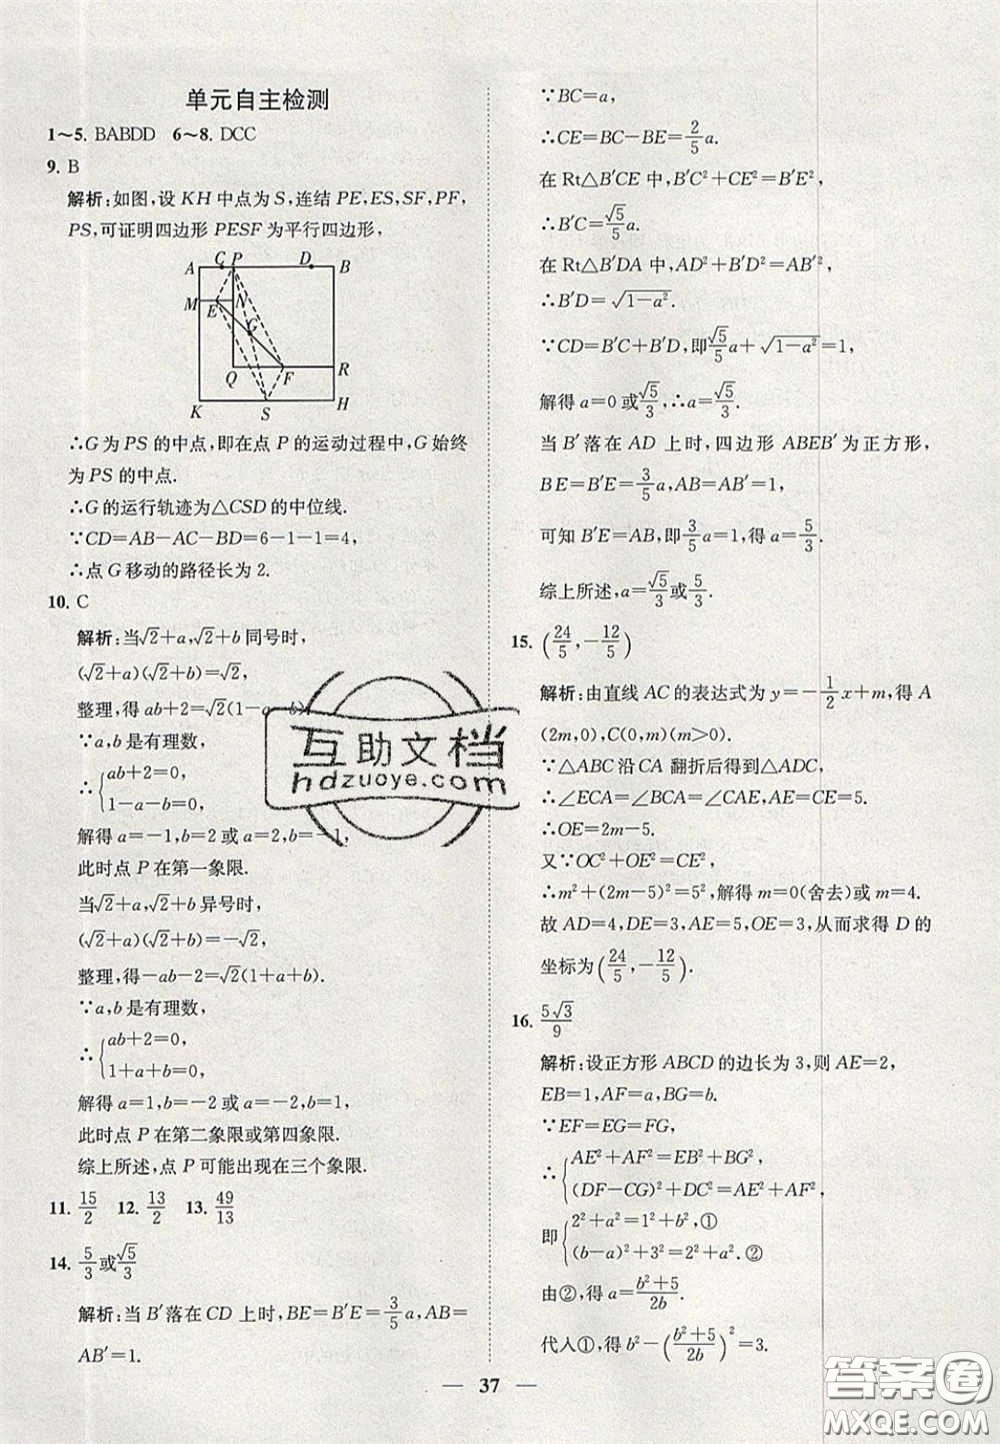 单元自主检测
1～5. BABDD 6～8. DCC
9. B
解析:如图,设 KH 中点为 S,连结 PE,ES,SF,PF,
PS,可证明四边形 PESF 为平行四边形,
A C P D B
M E N
G
Q F R
K S H
∴G 为 PS 的中点,即在点 P 的运动过程中,G 始终
为 PS 的中点.
∴G 的运行轨迹为△CSD 的中位线.
∵CD=AB-AC-BD=6-1-1=4,
∴点 G 移动的路径长为 2.
10. C
解析:当√2+a,√2+b 同号时,
(√2+a)(√2+b)=√2,
整理,得 ab+2=√2(1-a-b)
∵a,b 是有理数,
∴{ab+2=0,
1-a-b=0,
解得 a=-1,b=2 或 a=2,b=-1,
此时点 P 在第一象限.
当√2+a,√2+b 异号时,
(√2+a)(√2+b)=-√2,
整理,得-ab-2=√2(1+a+b).
∵a,b 是有理数,
∴{ab+2=0,
1+a+b=0,
解得 a=1,b=-2 或 a=-2,b=1,
此时点 P 在第二象限或第四象限.
综上所述,点 P 可能出现在三个象限.
11. 15/2 12. 13/2 13. 49/13
14. 5/3或√5/3
解析:当 B′落在 CD 上时,BE=B′E=3/5a,AB=
AB′=1.
∵BC=a,
∴CE=BC-BE=2/5a.
在 Rt△B′CE 中,B′C²+CE²=B′E²,
∴B′C=√5/5a.
在 Rt△B′DA 中,AD²+B′D²=AB′²,
∴B′D=√(1-a²).
∵CD=B′C+B′D,即√5/5a+√(1-a²)=1,
解得 a=0 或√5/3,∴a=√5/3.
当 B′落在 AD 上时,四边形 ABEB′为正方形,
BE=B′E=3/5a,AB=AB′=1,
可知 B′E=AB,即3/5a=1,得 a=5/3.
综上所述,a=√5/3或5/3.
15. (24/5,-12/5)
解析:由直线 AC 的表达式为 y=-1/2x+m,得 A
(2m,0),C(0,m)(m>0).
∵△ABC 沿 CA 翻折后得到△ADC,
∴∠ECA=∠BCA=∠CAE,AE=CE=5.
∴OE=2m-5.
又∵OC²+OE²=CE²,
∴m²+(2m-5)²=5²,解得 m=0(舍去)或 m=4.
故 AD=4,DE=3,AE=5,OE=3,从而求得 D 的
坐标为(24/5,-12/5).
16. 5√3/9
解析:设正方形 ABCD 的边长为 3,则 AE=2,
EB=1,AF=a,BG=b.
∵EF=EG=FG,
∴{AE²+AF²=EB²+BG²,
(DF-CG)²+DC²=AE²+AF²,
即{2²+a²=1²+b²,①
(b-a)²+3²=2²+a².②
由②,得 a=(b²+5)/2b.
代入①,得 b²-((b²+5)/2b)²=3.
37
互助文档
hdzuoye.com
答案圈
MXQE.COM